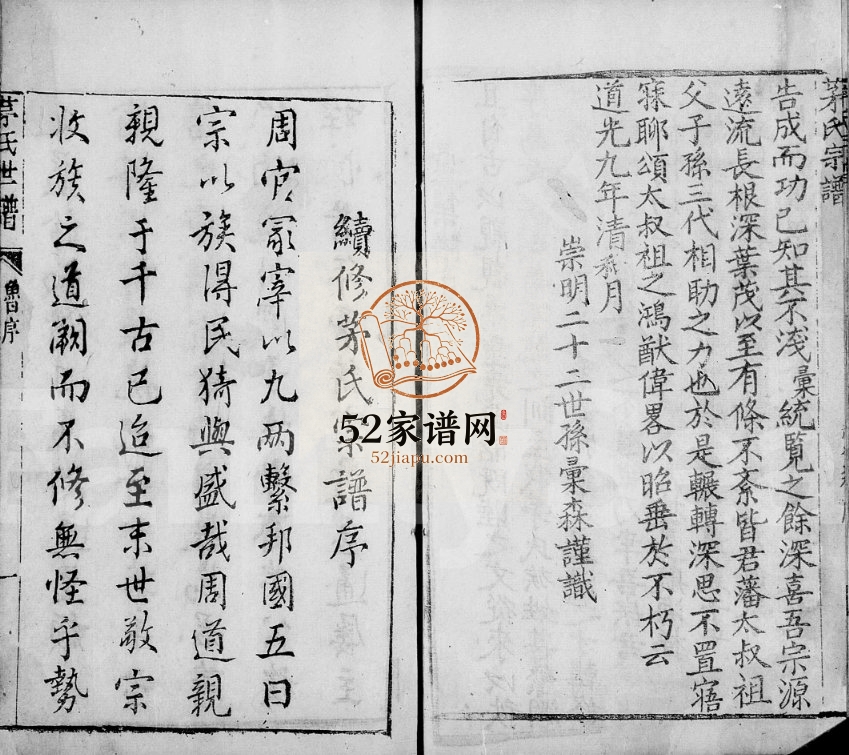 茅氏宗譜
告成而功已知其不淺彙統覽之餘深喜吾宗源
遠流長根深葉茂以至有條不紊皆君藩太叔祖
父子孫三代相助之力也於是輾轉深思不置寤
寐聊頌太叔祖之鴻猷偉畧以昭垂於不朽云
道光九年清和月
崇明二十二世孫彙森謹識
續修茅氏宗譜序
周官冢宰以九两繫邦國五曰
宗以族得民猗與盛哉周道親
親隆于千古已迨至末世敬宗
收族之道闕而不修無怪乎勢
茅氏世譜
魯序
52家谱网
52jiapu.com